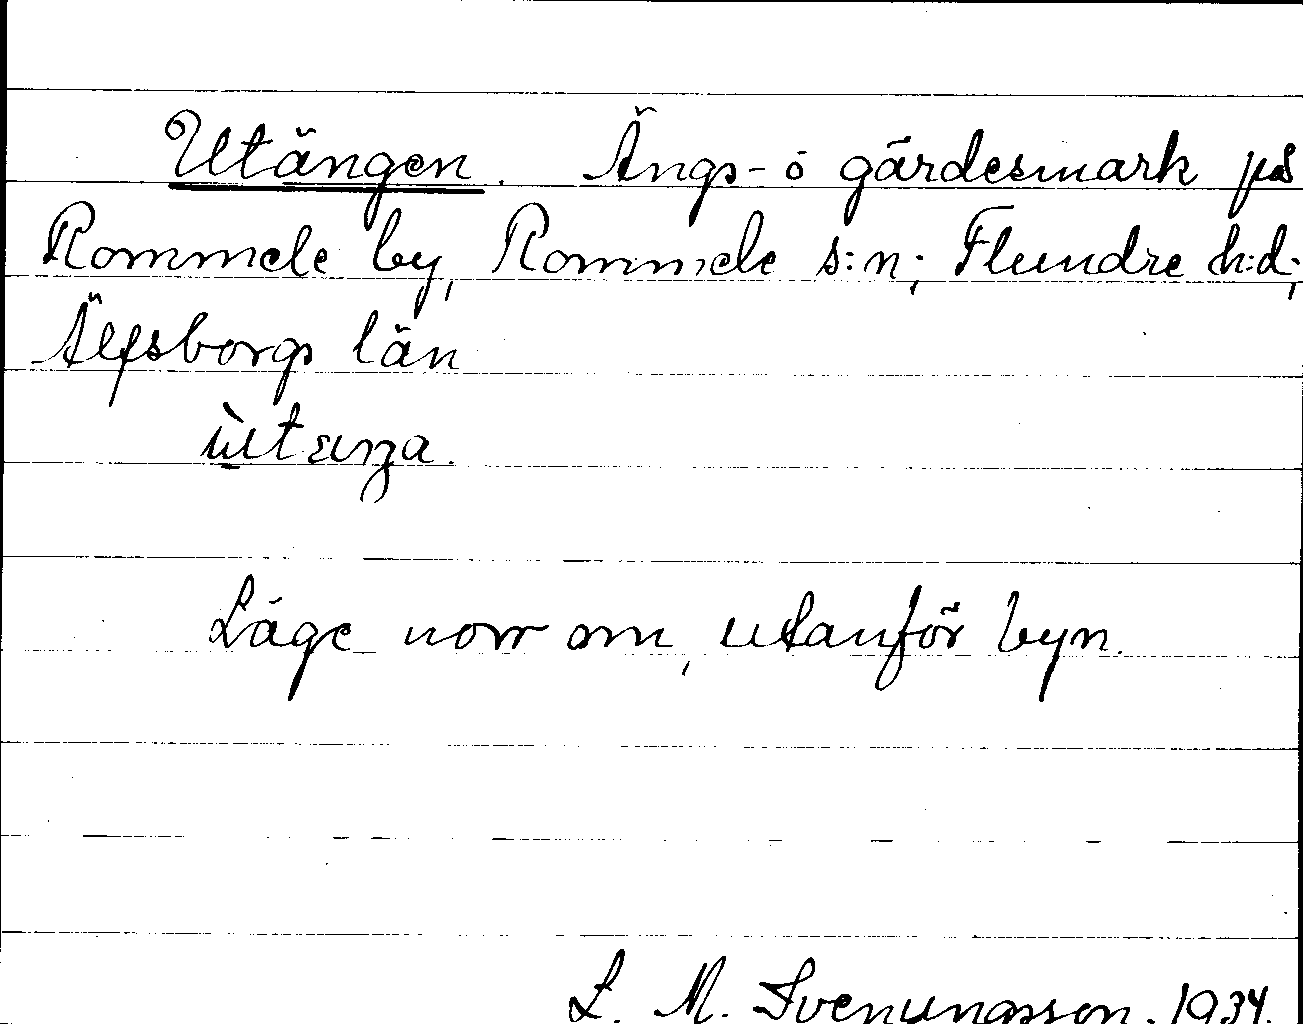 Utängen. Ängs- o gärdesmark på
Rommele by, Rommele s:n; Flundre h:d;
Älfsborgs län
Läge norr om, utanför byn.
L. M. Svenungsson. 1934.